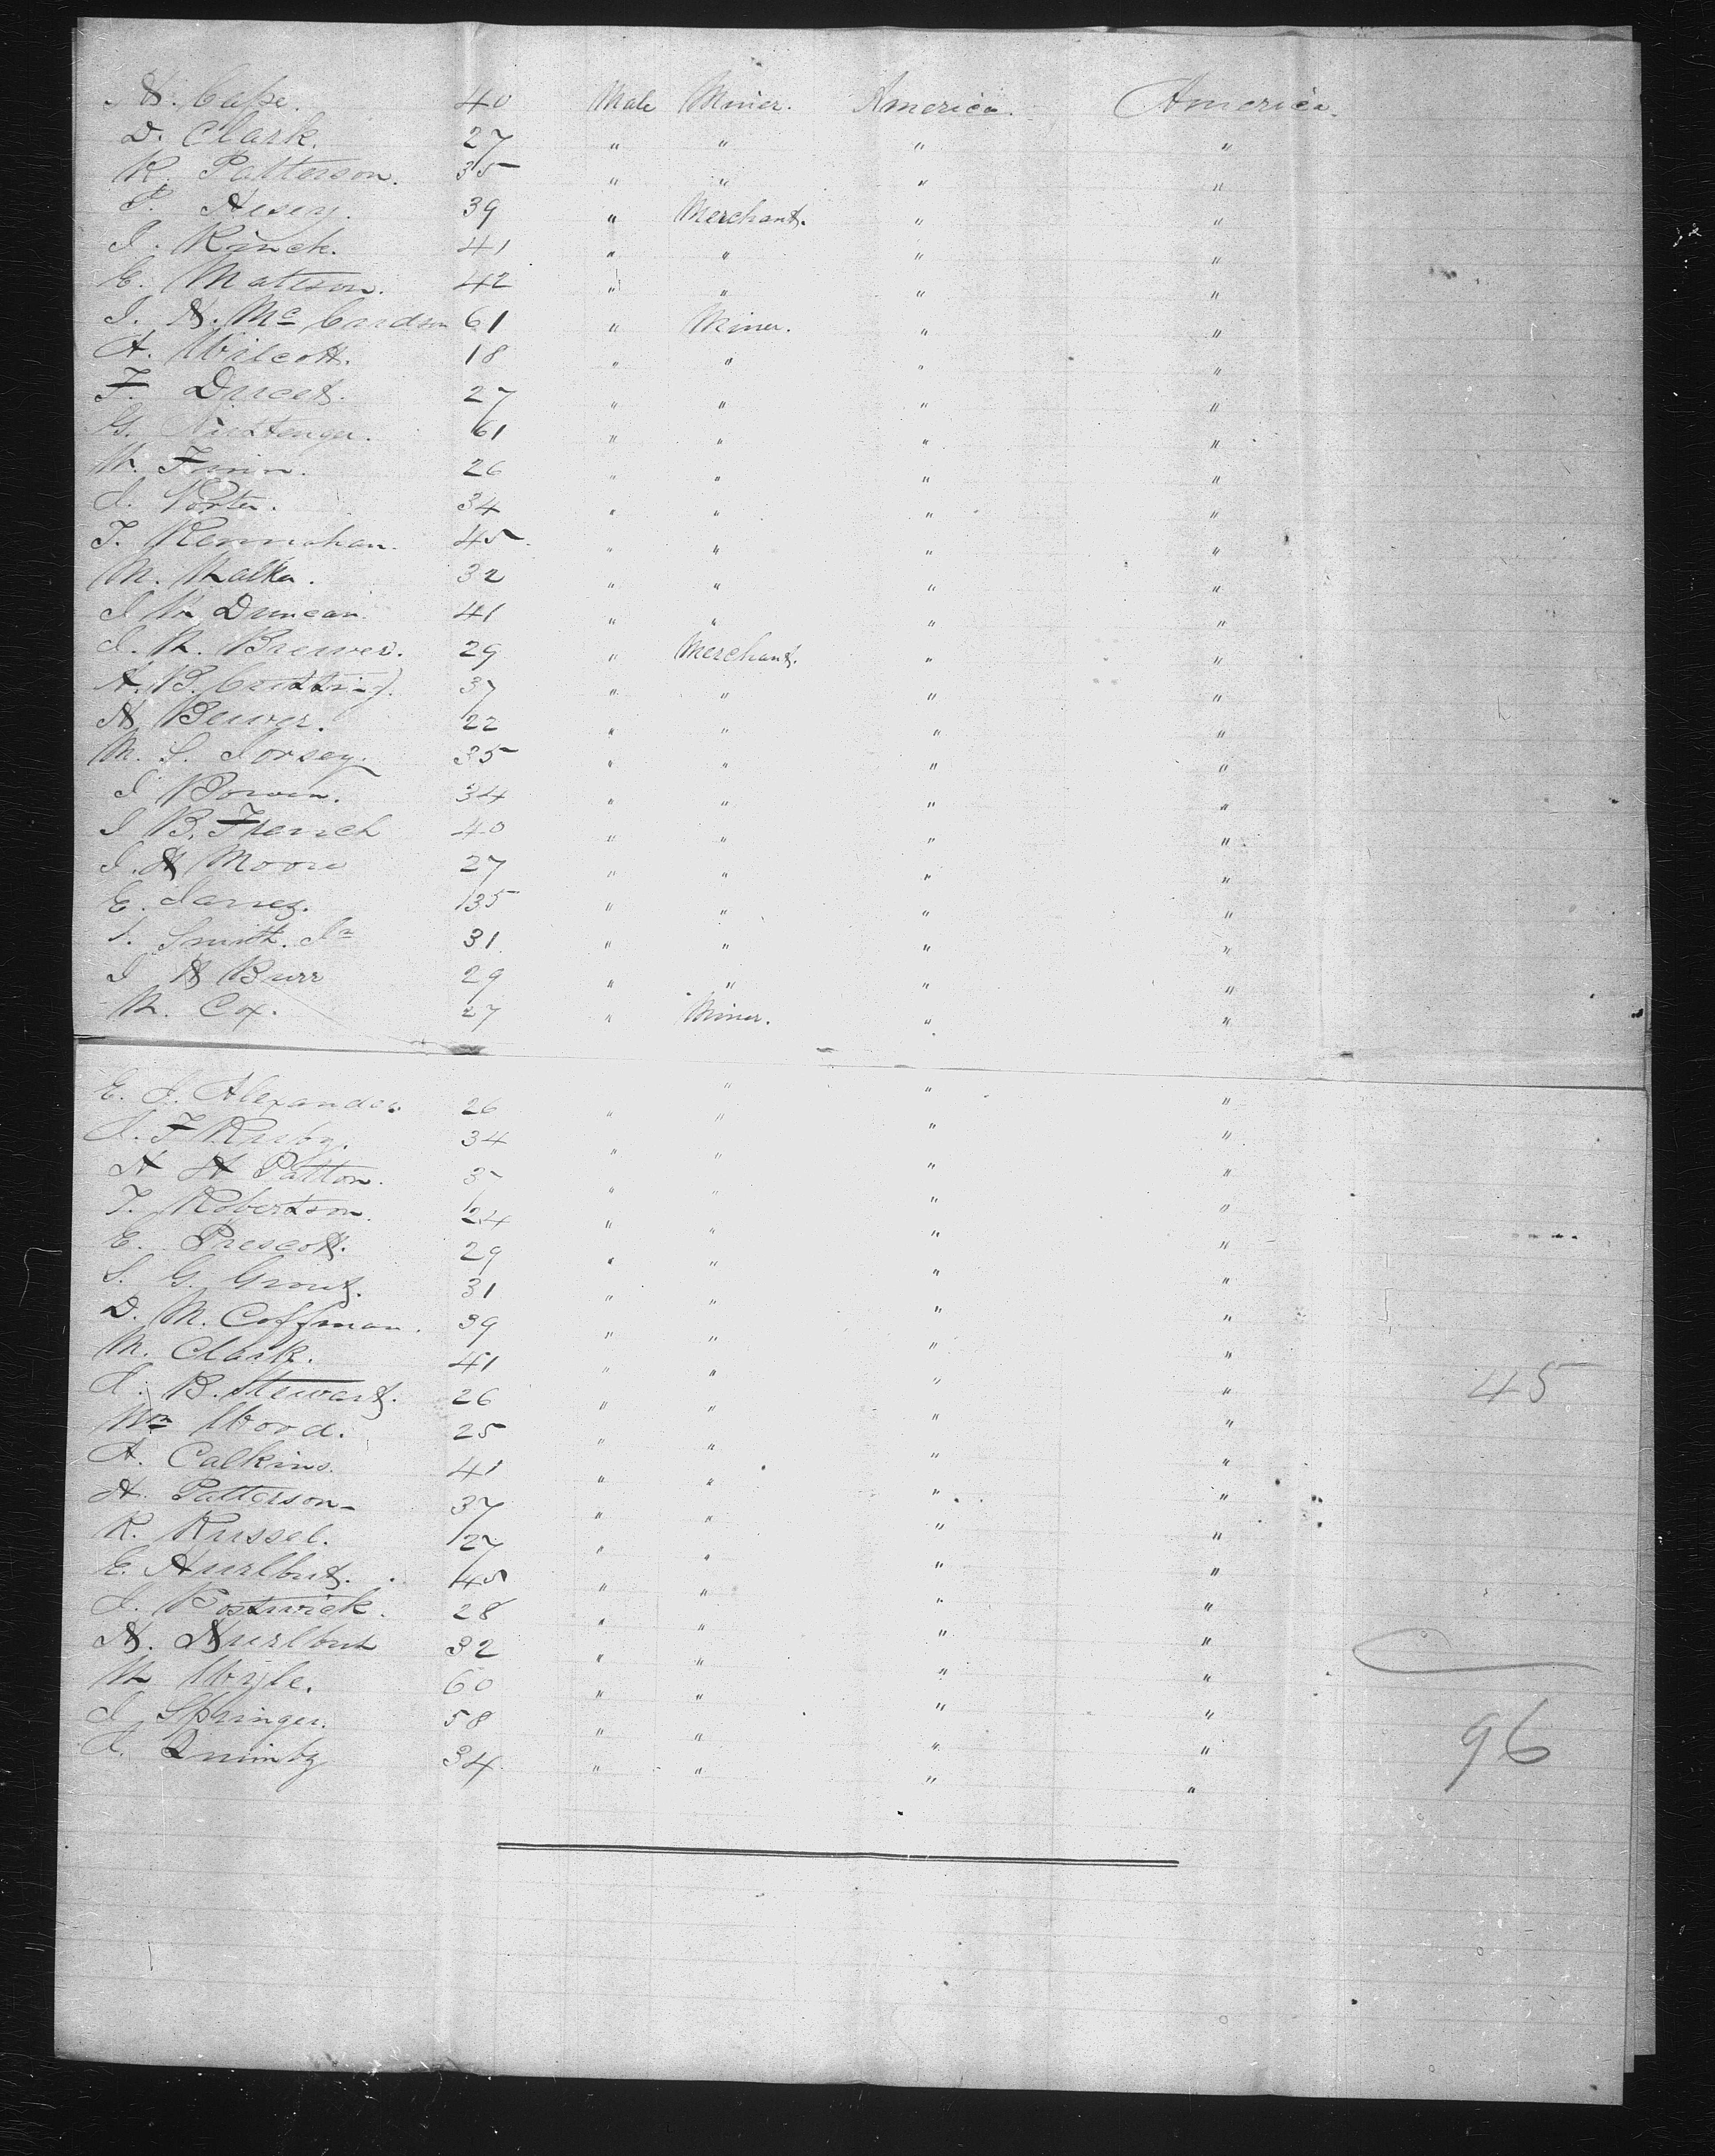 H. Cape. 40 Male Miner. America. America.
D. Clark. 27 " " " "
R. Patterson. 35 " " " "
P. Hesey. 39 " Merchant. " "
J. Rinck. 41 " " " "
E. Mattson. 42 " " " "
J. H. Mc 61 " Miner. " "
A. Wilcott. 18 " " " "
F. Ducet. 27 " " " "
G. 61 " " " "
W. Finin. 26 " " " "
J. Porter. 34 " " " "
T. Kennahan. 45 " " " "
M. Walker. 32 " " " "
J W Duncan. 41 " " " "
J. W. Brewer. 29 " Merchant. " "
A. B. Cutting. 37 " " " "
H Bewer. 22 " " " "
M. S. Dorsey. 35 " " " "
J Bowen. 34 " " " "
J B. French 40 " " " "
J. H Moore 27 " " " "
E. James. 35 " " " "
J. Smith. Jr 31 " " " "
J H Burr 29 " " " "
W. Cox. 27 " Miner. " "
E. J. Alexander. 26 " " " "
J. F Kirby. 34 " " " "
H A Patton. 3 " " " "
T. Robertson. 24 " " " "
E. Prescott. 29 " " " "
S. G. Grout. 31 " " " "
D. M. Coffman. 39 " " " "
M. Clark. 41 " " " "
J. B. Stewart. 26 " " " " 45
Wm Wood. 25 " " " "
A. Calkins. 41 " " " "
A. Patterson 37 " " " "
R. Russel. 27 " " " "
E. Hurlbut. 45 " " " "
J. Bostwick. 28 " " " "
H. Hurlbut 32 " " " "
W Wyle. 60 " " " "
J Springer. 58 " " " " 96
J. Quimby 34 " " " "